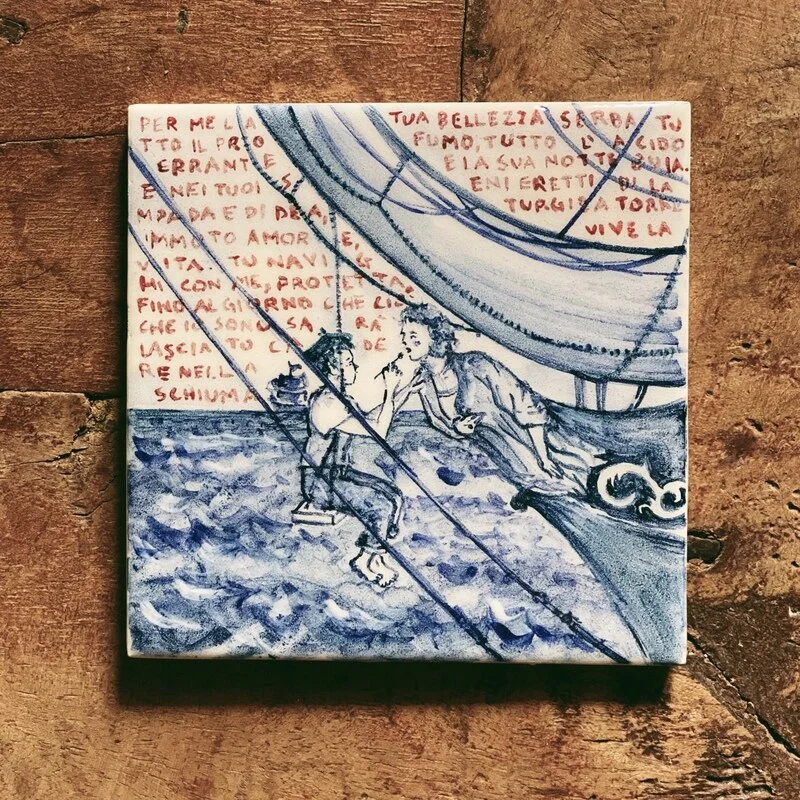 PER ME LA TUA BELLEZZA SERBA TU
TTO IL PROFUMO, TUTTO L'ACIDO
ERRANTE E LA SUA NOTTE BUIA.
E NEI TUOI SENI ERETTI DI LA
MPADA E DI DEA, TURGIDA TORRE
IMMOTO AMORE, VIVE LA
VITA. TU NAVIG
HI CON ME, PROTETTA,
FINO AL GIORNO CHE CIO
CHE IO SONO SARÀ
LASCIATO CADE
RE NELLA
SCHIUMA